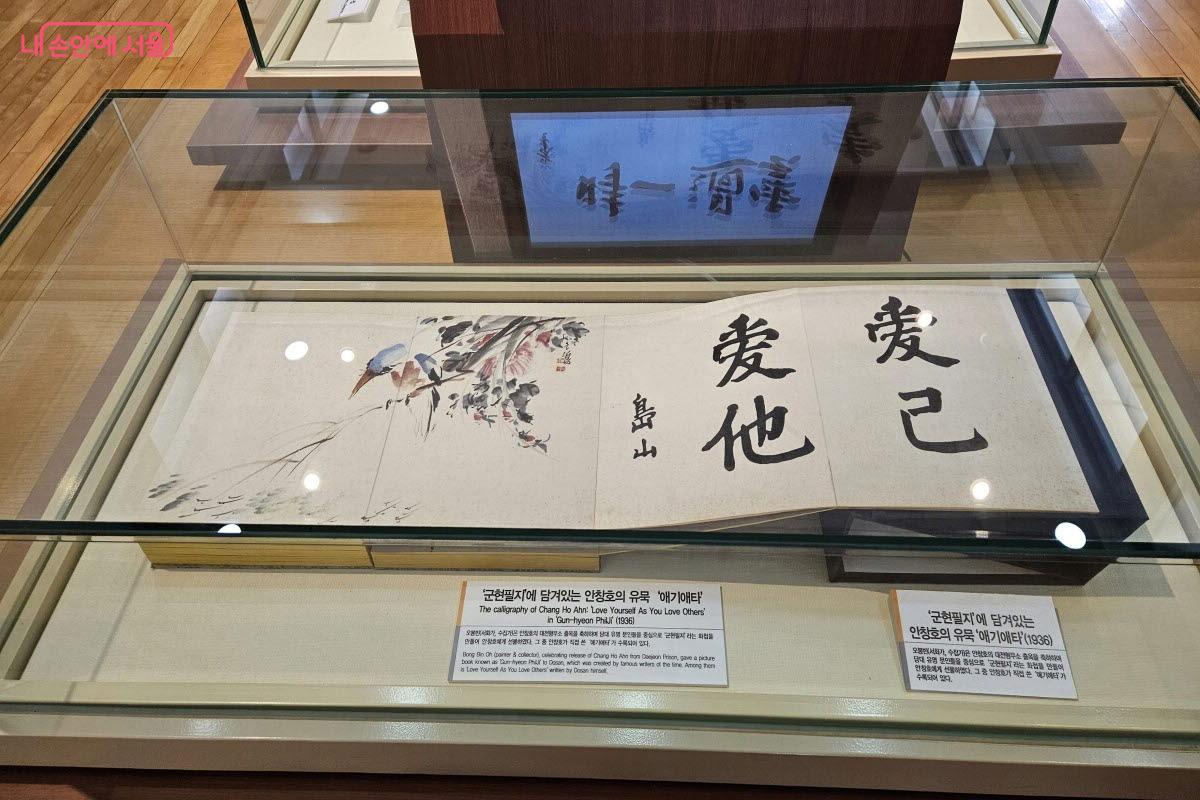 내 손안에 서울
愛己
愛他
島山
'군현필지'에 담겨있는 안창호의 유묵 '애기애타'
The calligraphy of Chang Ho Ahn: 'Love Yourself As You Love Others'
in 'Gun-hyeon PhilJi' (1936)
오봉빈(서화가, 수집가)은 안창호의 대전형무소 출옥을 축하하며 당대 유명 문인들을 중심으로 '군현필지'라는 화첩을
만들어 안창호에게 선물하였다. 그 중 안창호가 직접 쓴 '애기애타'가 수록되어 있다.
Bong Bin Oh (painter & collector), celebrating release of Chang Ho Ahn from Daejeon Prison, gave a picture
book known as 'Gun-hyeon PhilJi' to Dosan, which was created by famous writers of the time. Among them
is 'Love Yourself As You Love Others' written by Dosan himself.
'군현필지'에 담겨있는
안창호의 유묵 '애기애타'(1936)
오봉빈(서화가, 수집가)은 안창호의 대전형무소 출옥을 축하하며
당대 유명 문인들을 중심으로 '군현필지'라는 화첩을 만들어
안창호에게 선물하였다. 그 중 안창호가 직접 쓴 '애기애타'가
수록되어 있다.